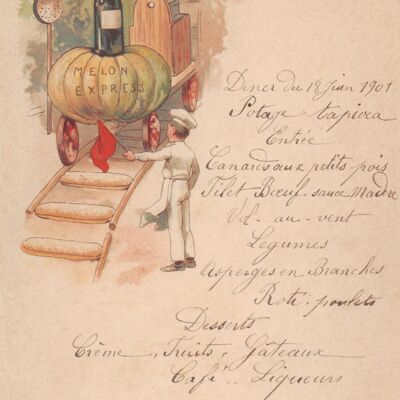 MELON
EXPRESS
Diner du 18 Juin 1901
Potage tapioca
Entrée
Canards aux petits pois
Filet Bœuf sauce Madère
Vol-au-vent
Légumes
Asperges en Branches
Roti poulets
Desserts
Crème, Fruits, Gâteaux
Café .. Liqueurs